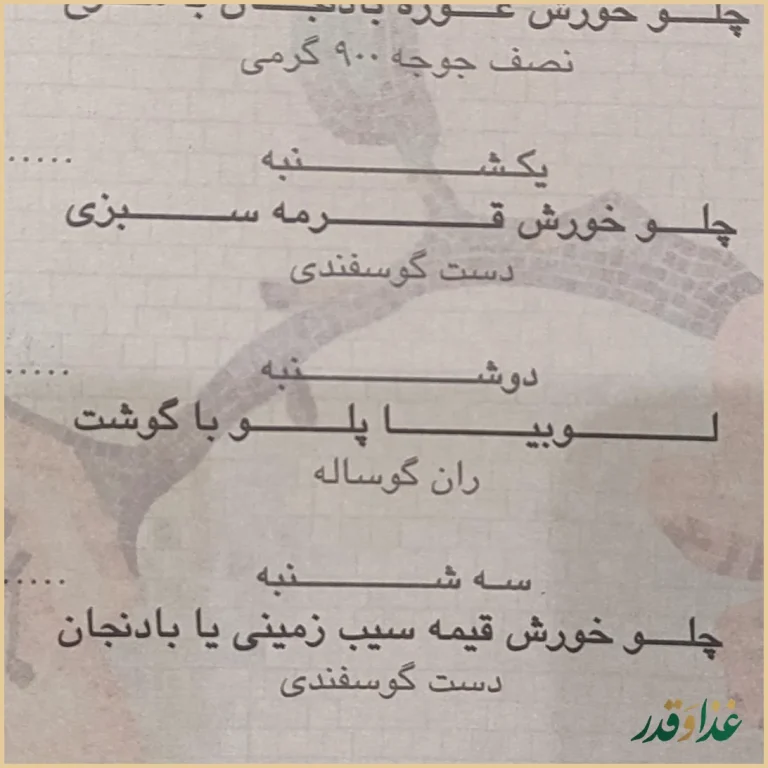 چلو خورش غوره بادنجان با
نصف جوجه ۹۰۰ گرمی
یکشنبه
.....
چلو خورش قرمه سبزی
دست گوسفندی
دوشنبه
.....
لوبیا پلو با گوشت
ران گوساله
سه شنبه
.....
چلو خورش قیمه سیب زمینی یا بادنجان
دست گوسفندی
غذا و قدر